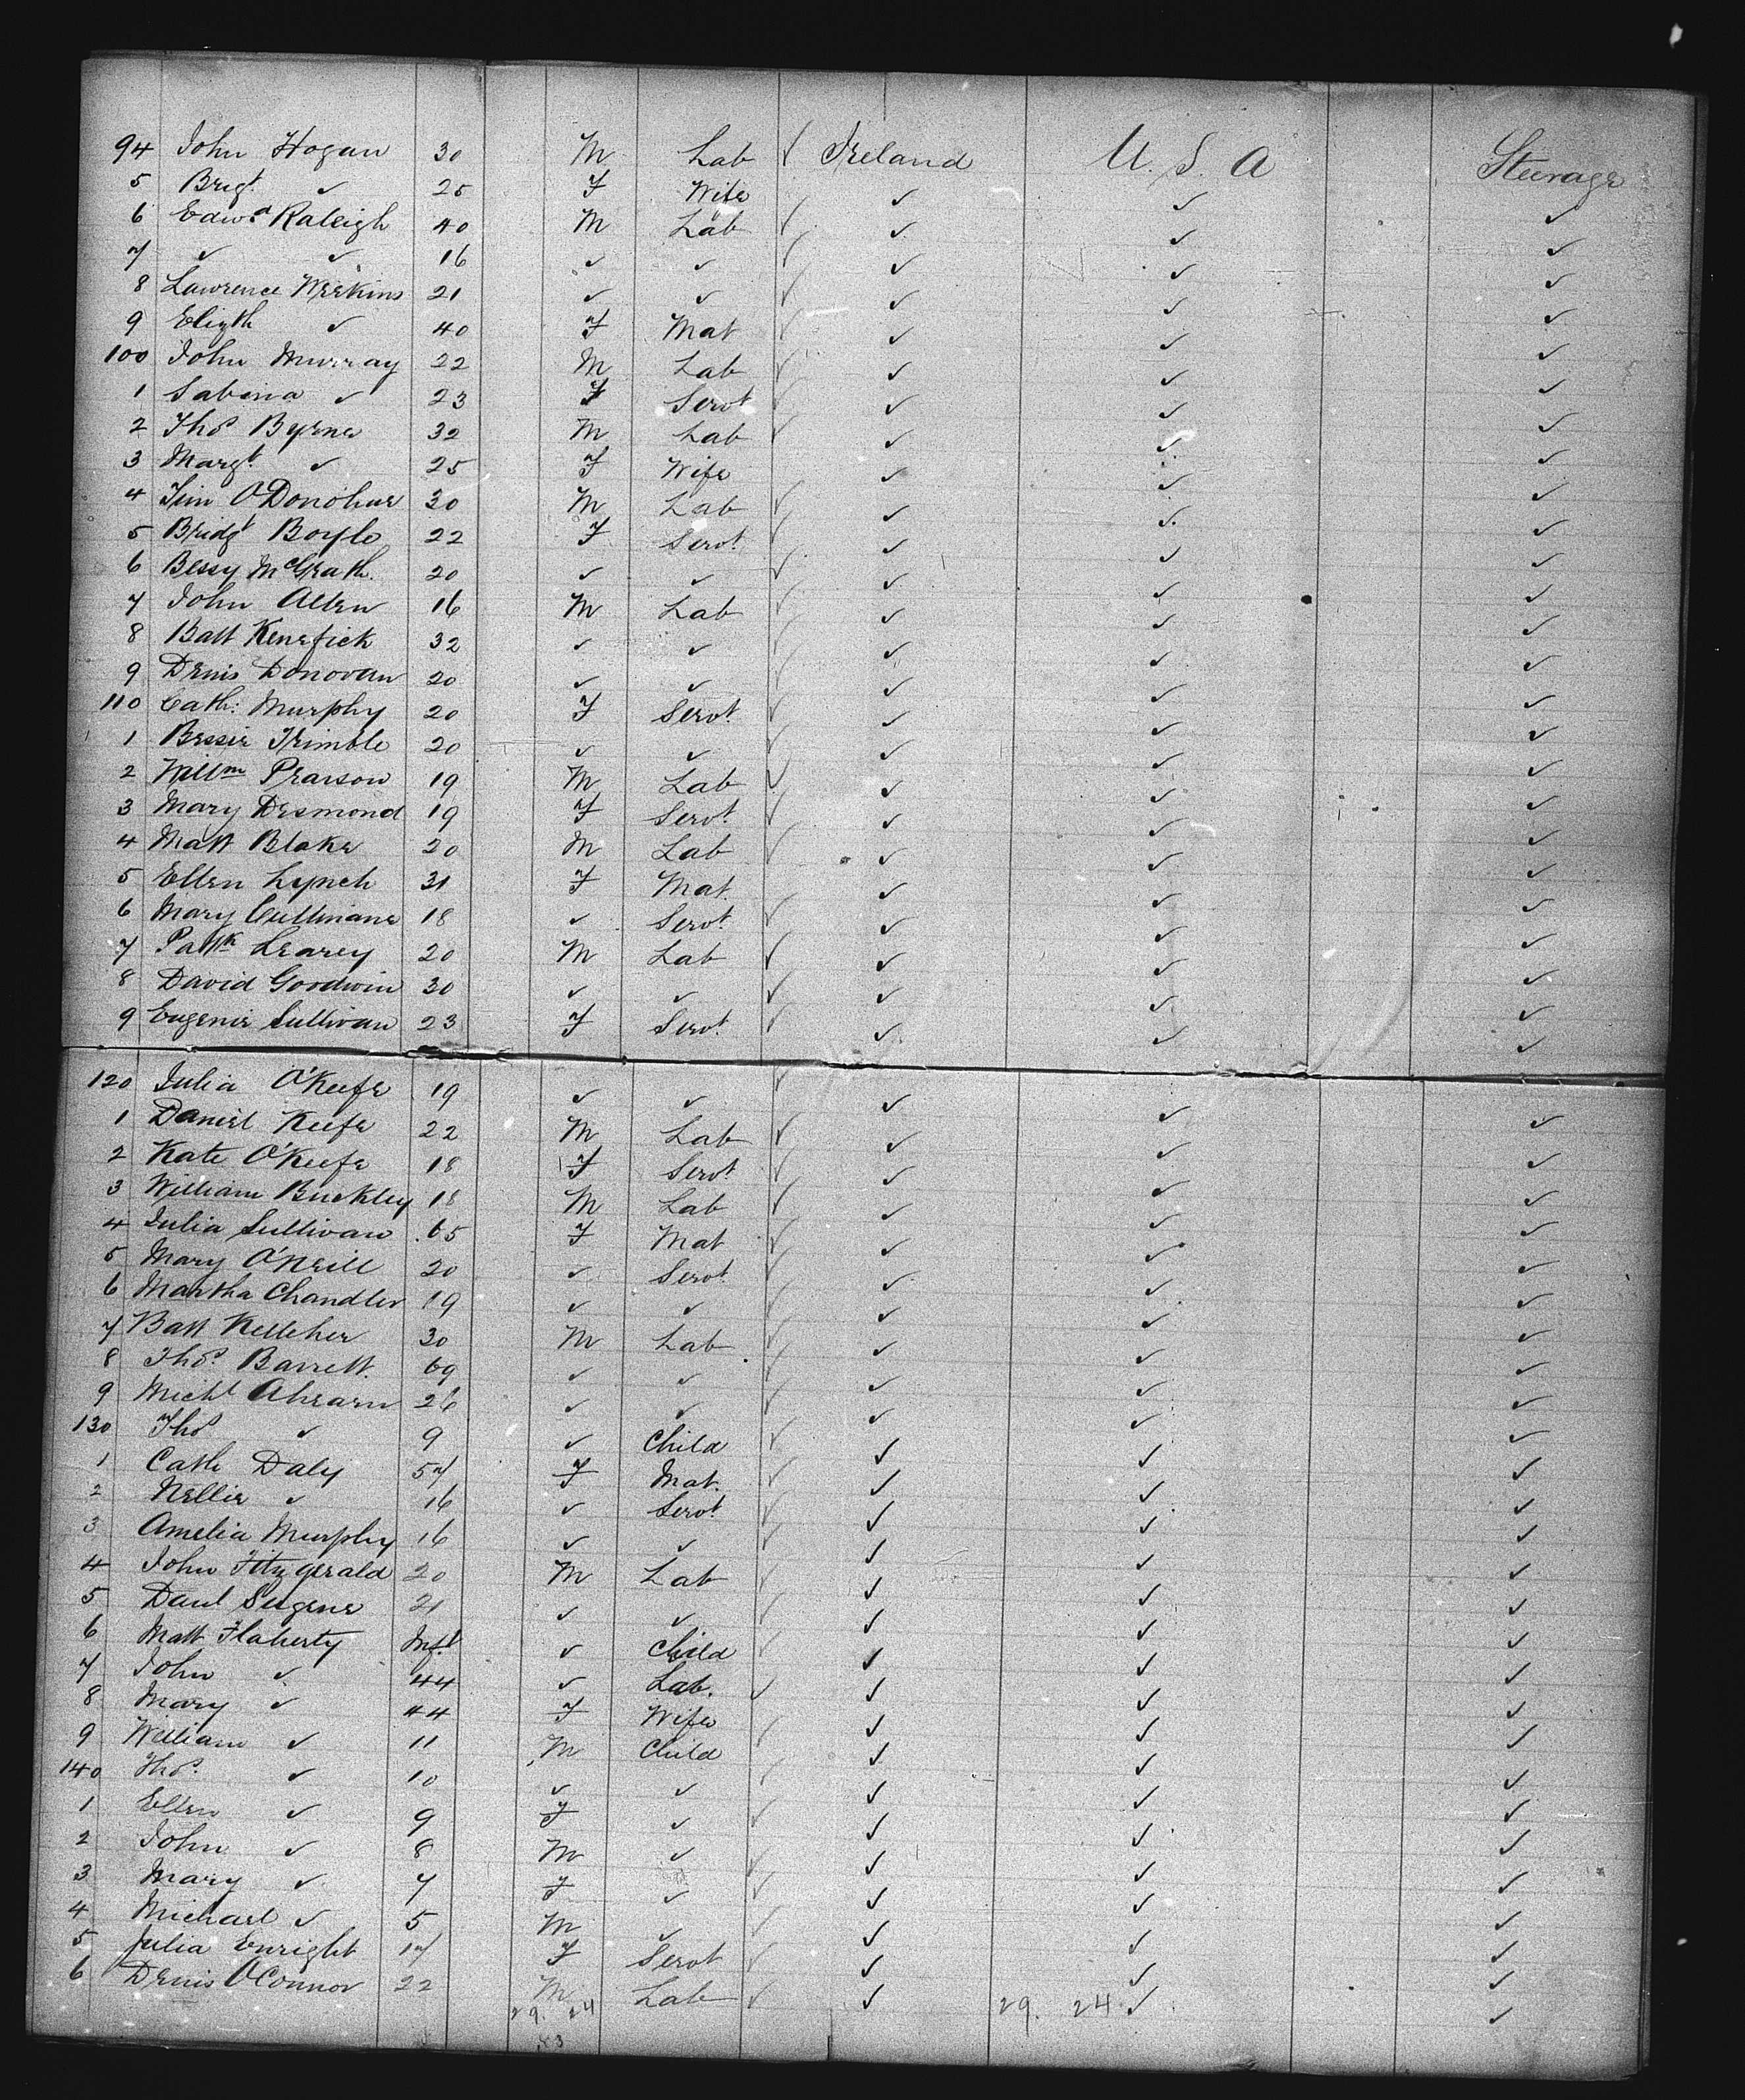 94 John Hogan 30 M Lab ✓ Ireland U. S. A Steerage
5 Brigt ✓ 25 F Wife ✓ ✓ ✓
6 Edwd Raleigh 40 M Lab ✓ ✓ ✓ ✓
7 ✓ ✓ 16 ✓ ✓ ✓ ✓ ✓ ✓
8 Lawrence Meekins 21 ✓ ✓ ✓ ✓ ✓ ✓
9 Elizth ✓ 40 F Mat ✓ ✓ ✓ ✓
100 John Murray 22 M Lab ✓ ✓ ✓ ✓
1 Sabina ✓ 23 F Servt ✓ ✓ ✓ ✓
2 Thos Byrne 32 M Lab ✓ ✓ ✓ ✓
3 Margt. ✓ 25 F Wife ✓ ✓ ✓
4 Tim O'Donohue 30 M Lab ✓ ✓ ✓ ✓
5 Bridgt Boyle 22 F Servt. ✓ ✓ ✓ ✓
6 Bessy McGrath. 20 ✓ ✓ ✓ ✓ ✓ ✓
7 John Allen 16 M Lab ✓ ✓ ✓ ✓
8 Batt Kenefick 32 ✓ ✓ ✓ ✓ ✓ ✓
9 Denis Donovan 20 ✓ ✓ ✓ ✓ ✓ ✓
110 Cath: Murphy 20 F Servt. ✓ ✓ ✓ ✓
1 Bessie Trimble 20 ✓ ✓ ✓ ✓ ✓ ✓
2 Willm Pearson 19 M Lab ✓ ✓ ✓ ✓
3 Mary Desmond 19 F Servt. ✓ ✓ ✓ ✓
4 Matt Blake 20 M Lab ✓ ✓ ✓ ✓
5 Ellen Lynch 31 F Mat. ✓ ✓ ✓ ✓
6 Mary Cullinane 18 ✓ Servt. ✓ ✓ ✓ ✓
7 Patk Learey 20 M Lab ✓ ✓ ✓ ✓
8 David Goodwin 30 ✓ ✓ ✓ ✓ ✓ ✓
9 Eugenie Sullivan 23 F Servt. ✓ ✓ ✓ ✓
120 Julia O'Keefe 19 ✓ ✓ ✓ ✓ ✓ ✓
1 Daniel Keefe 22 M Lab ✓ ✓ ✓ ✓
2 Kate O'Keefe 18 F Servt ✓ ✓ ✓ ✓
3 William Buckley 18 M Lab ✓ ✓ ✓ ✓
4 Julia Sullivan 65 F Mat ✓ ✓ ✓ ✓
5 Mary O'Neill 20 ✓ Servt ✓ ✓ ✓ ✓
6 Martha Chandler 19 ✓ ✓ ✓ ✓ ✓ ✓
7 Batt Kelleher 30 M Lab ✓ ✓ ✓ ✓
8 Thos. Barrett. 69 ✓ ✓ ✓ ✓ ✓ ✓
9 Michl Ahearn 26 ✓ ✓ ✓ ✓ ✓ ✓
130 Thos ✓ 9 ✓ Child ✓ ✓ ✓ ✓
1 Cath Daly 57 F Mat. ✓ ✓ ✓ ✓
2 Nellie ✓ 16 ✓ Servt ✓ ✓ ✓ ✓
3 Amelia Murphy 16 ✓ ✓ ✓ ✓ ✓ ✓
4 John Fitzgerald 20 M Lab ✓ ✓ ✓ ✓
5 Danl 21 ✓ ✓ ✓ ✓ ✓ ✓
6 Matt Flaherty Inft ✓ Child ✓ ✓ ✓ ✓
7 John ✓ 44 ✓ Lab. ✓ ✓ ✓ ✓
8 Mary ✓ 44 F Wife ✓ ✓ ✓ ✓
9 William ✓ 11 M Child ✓ ✓ ✓ ✓
140 Thos. ✓ 10 ✓ ✓ ✓ ✓ ✓ ✓
1 Ellen ✓ 9 F ✓ ✓ ✓ ✓ ✓
2 John ✓ 8 M ✓ ✓ ✓ ✓ ✓
3 Mary ✓ 7 F ✓ ✓ ✓ ✓ ✓
4 Michael ✓ 5 M ✓ ✓ ✓ ✓ ✓
5 Julia Enright 17 F Servt ✓ ✓ ✓ ✓
6 Denis O'Connor 22 M Lab ✓ ✓ ✓ ✓
29. 24 29. 24
53